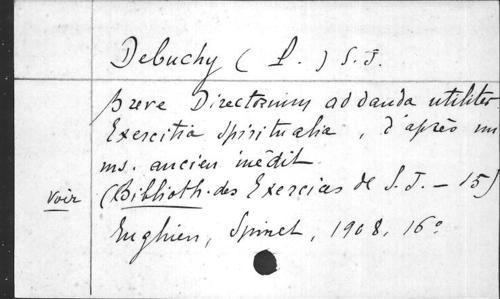 Debuchy (P.) S.J.
Breve Directorium ad danda utiliter
Exercitia Spiritualia, d'après un
ms. ancien inédit
voir (Biblioth. des Exercices de S.J. – 15)
Enghien, Spinet, 1908, 16°